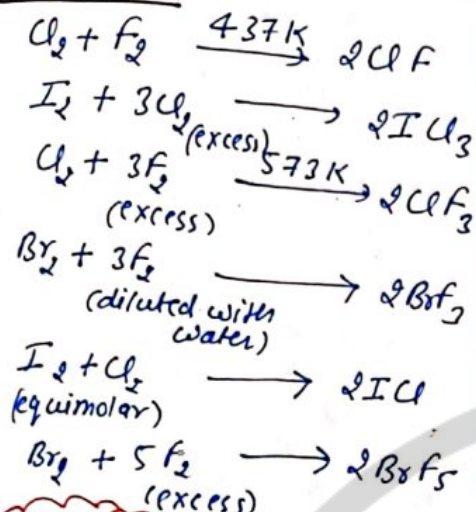 Cl₂ + F₂ —437K→ 2ClF
I₂ + 3Cl₂ (excess) ⟶ 2ICl₃
Cl₂ + 3F₂ (excess) —573K→ 2ClF₃
Br₂ + 3F₂ (diluted with water) ⟶ 2BrF₃
I₂ + Cl₂ (equimolar) ⟶ 2ICl
Br₂ + 5F₂ (excess) ⟶ 2BrF₅